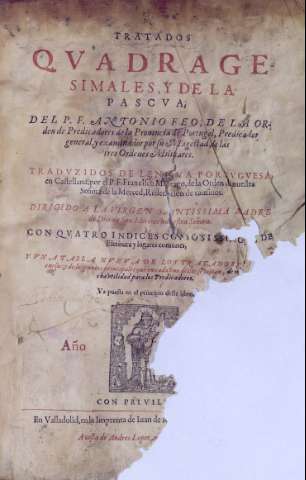 TRATADOS
QVADRAGE
SIMALES, Y DE LA
PASCVA,
DEL P. F. ANTONIO FEO, DE LA OR-
den de Predicadores de la Prouincia de Portugal, Predicador
general, y examinador por su Magestad de las
tres Ordenes Militares.
TRADVZIDOS DE LENGVA PORTVGVESA
en Castellana, por el P. F. de la Orden de nuestra
Señora de la Merced, de
DIRIGIDO A LA VIRGEN SANTISSIMA MADRE
de Dios Señora
CON QVATRO INDICES COPIOSISSIMOS, DE
Escritura y lugares comunes,
Y VNA TABLA NVEVA DE LOS TRATADOS
para los Predicadores.
Va puesta en el principio deste libro.
Año
CON PRIVIL
En Valladolid, en la Imprenta de Iuan de
A costa de Andres Lopez,